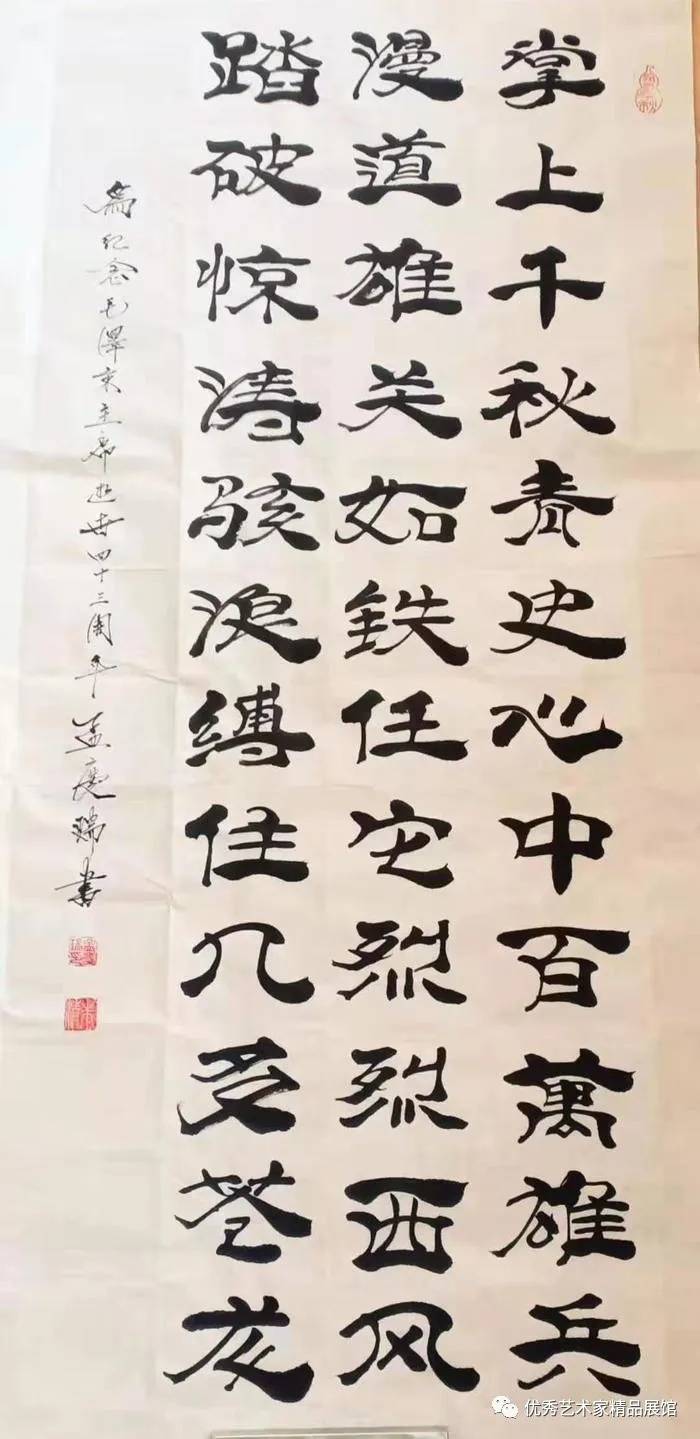 掌上千秋青史心中百萬雄兵
漫道雄关如鉄任它烈烈西风
踏破惊涛骇浪缚住几受苍龙
為纪念毛澤东主席逝世四十三周年孟庆瑞書
优秀艺术家精品展馆